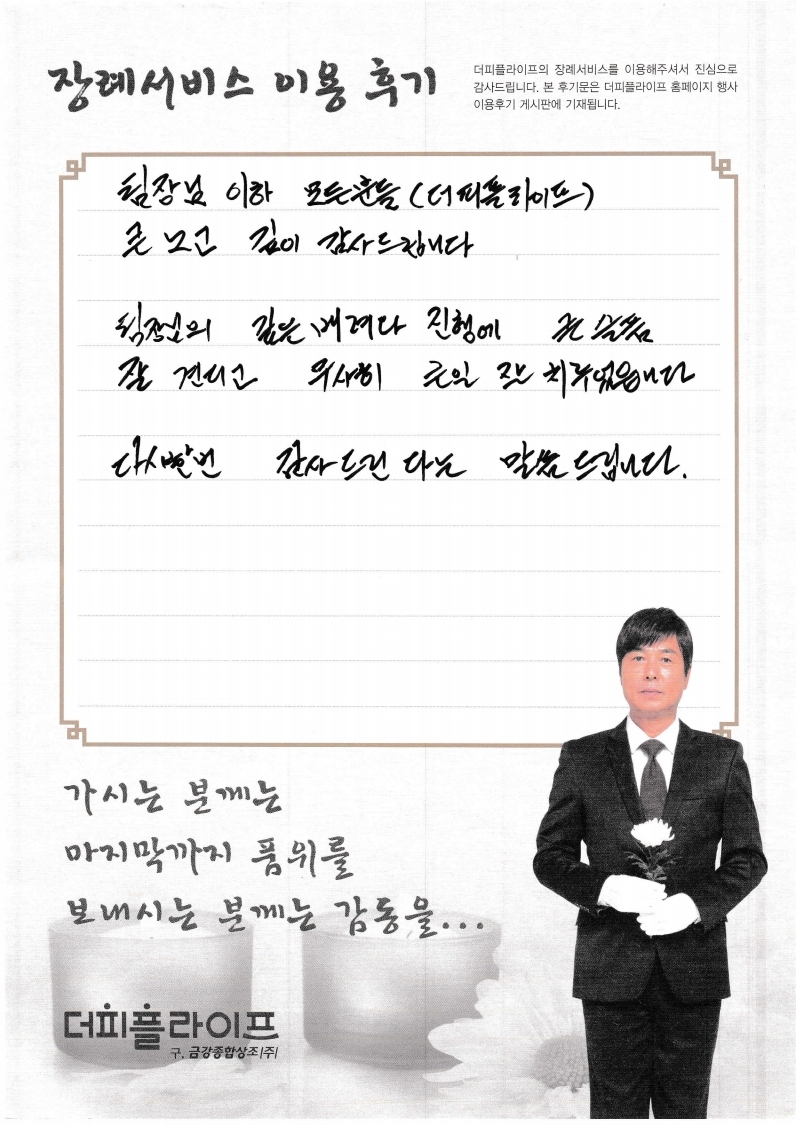 장례서비스 이용 후기
더피플라이프의 장례서비스를 이용해주셔서 진심으로
감사드립니다. 본 후기문은 더피플라이프 홈페이지 행사
이용후기 게시판에 기재됩니다.
팀장님 이하 모든분들 (더피플라이프)
큰 노고 깊이 감사드립니다
팀장님의 깊은 배려다 진행에 큰 슬픔
잘 견디고 무사히 큰일 잘 치루었읍니다
다시한번 감사드린다는 말씀드립니다.
가시는 분께는
마지막까지 품위를
보내시는 분께는 감동을...
더피플라이프
구. 금강종합상조(주)